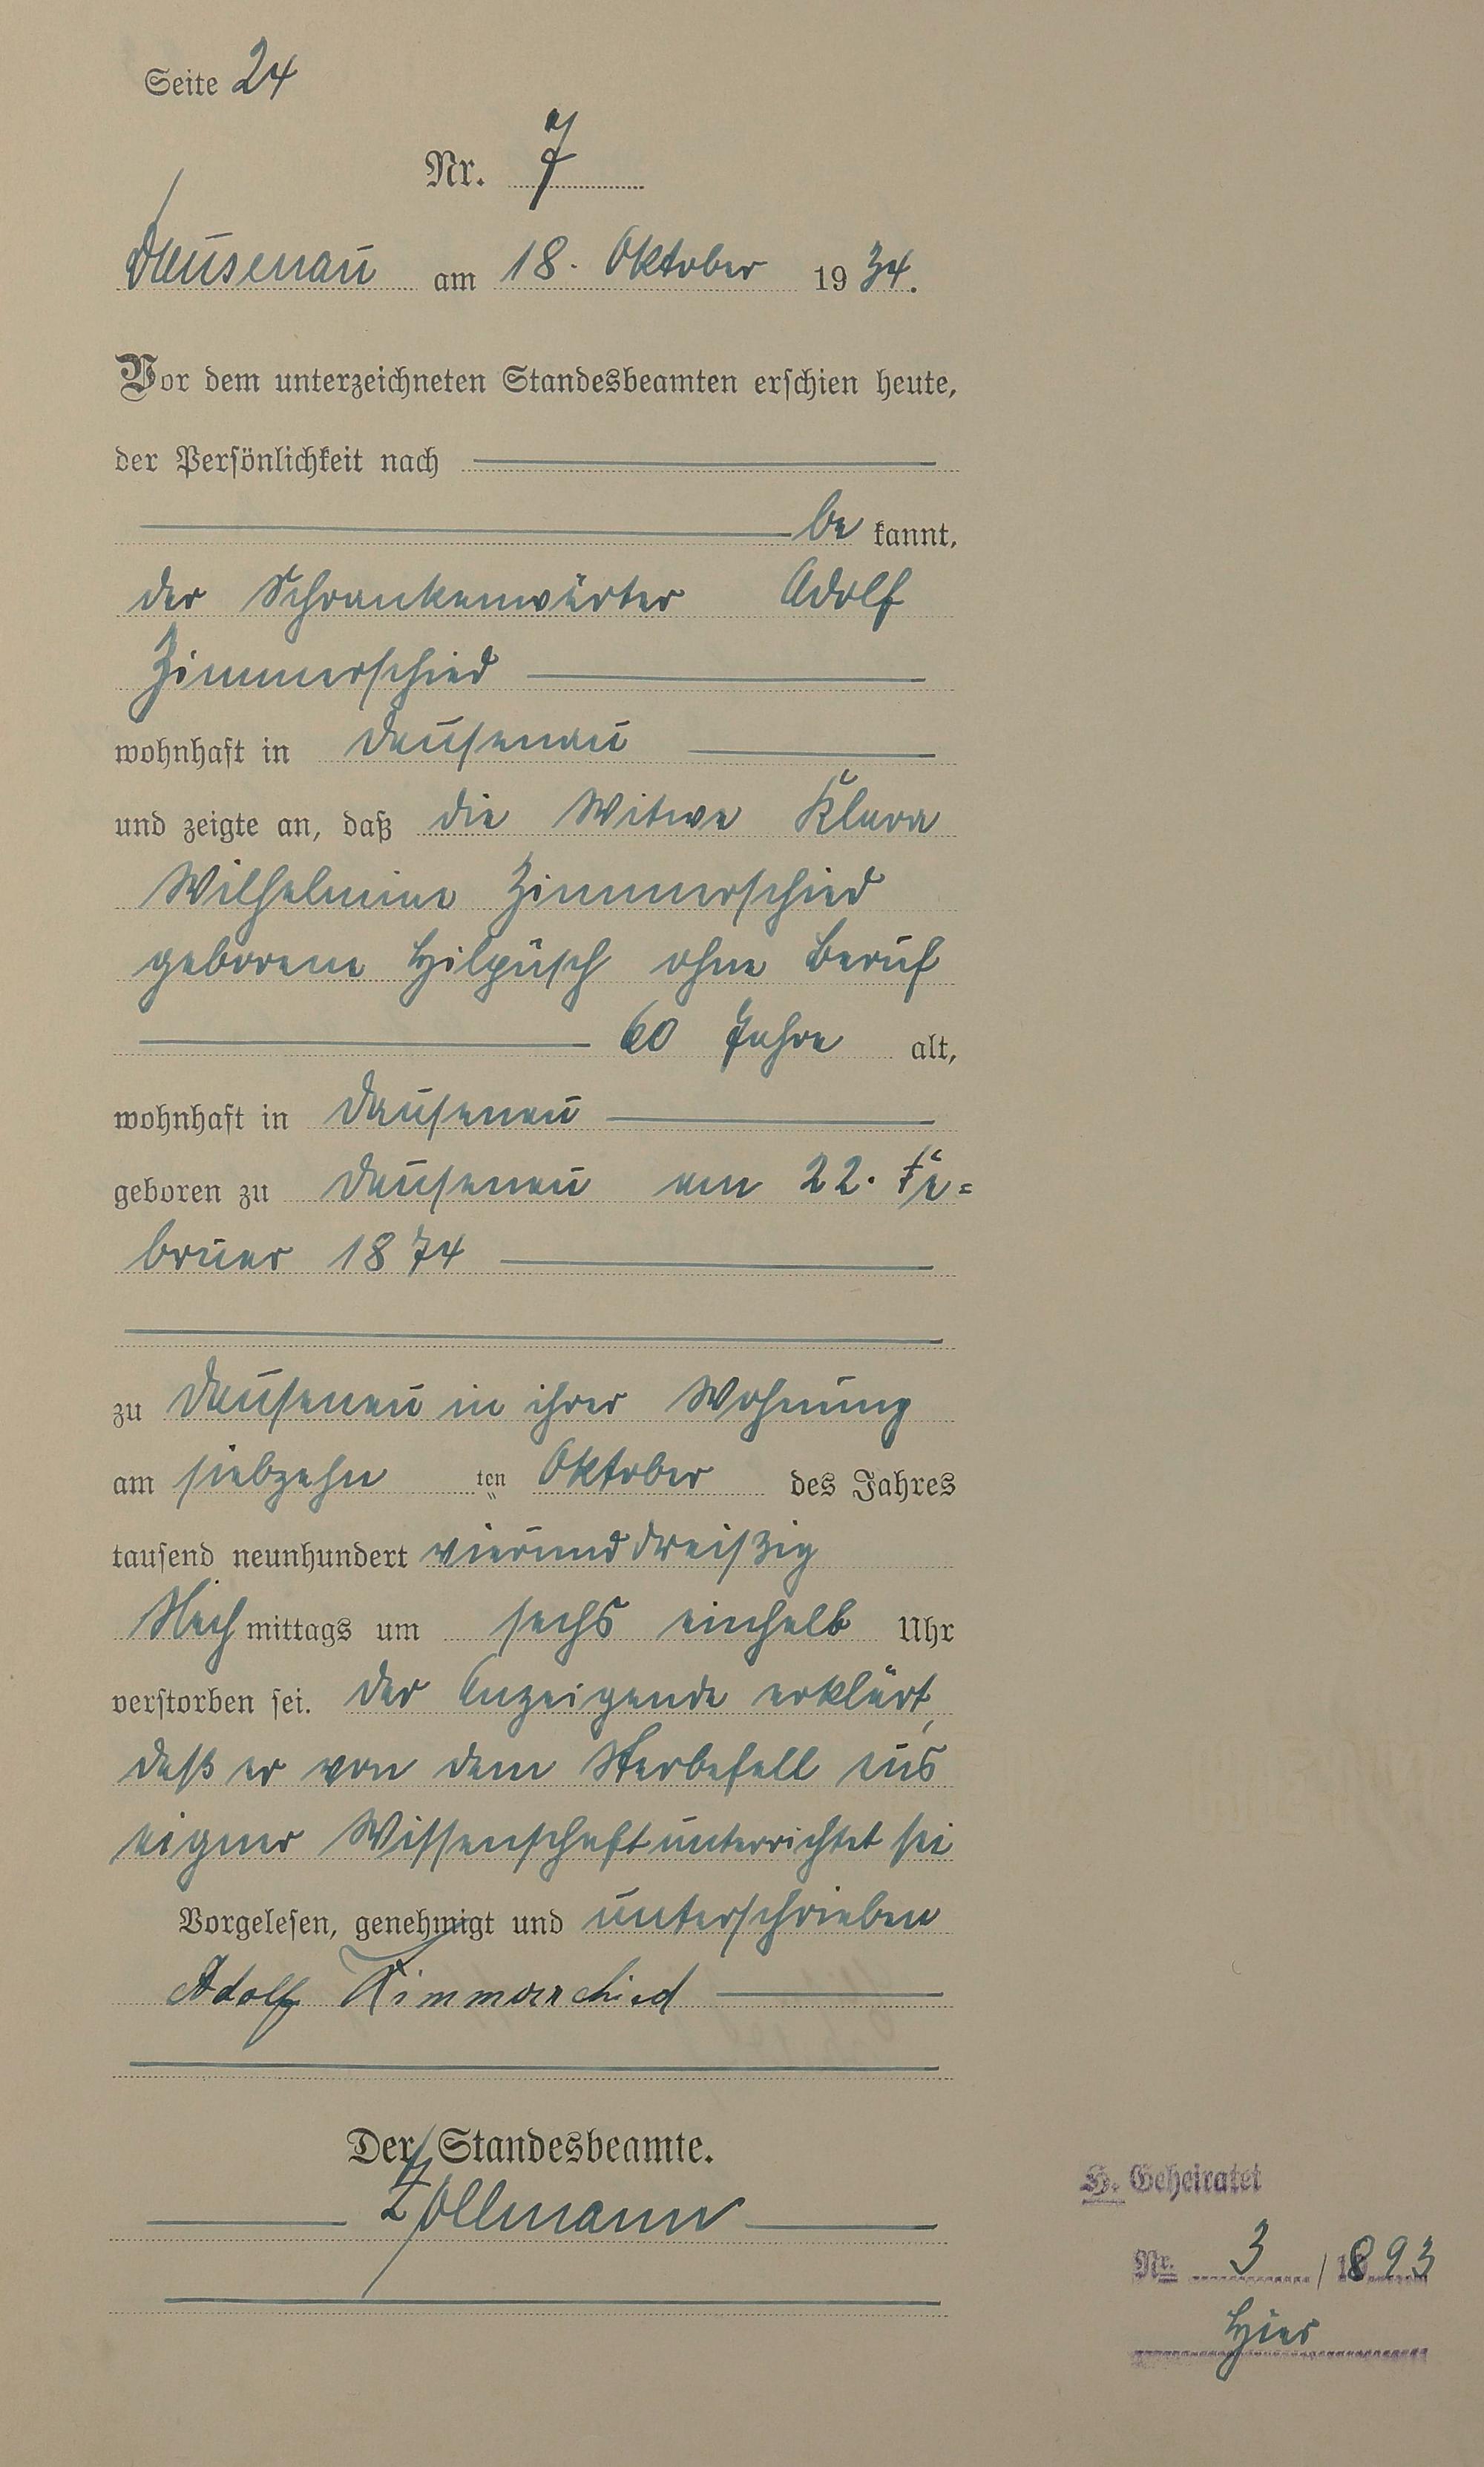 Seite 24
Nr. 7
Dausenau am 18. Oktober 1934.
Vor dem unterzeichneten Standesbeamten erschien heute,
der Persönlichkeit nach
be kannt,
der Schrankenwärter Adolf
Zimmerschied
wohnhaft in Dausenau
und zeigte an, daß die Witwe Klara
Wilhelmine Zimmerschied
geborene Hilpüsch ohne Beruf
60 Jahre alt,
wohnhaft in Dausenau
geboren zu Dausenau am 22. Fe=
bruar 1874
zu Dausenau in ihrer Wohnung
am siebzehn ten Oktober des Jahres
tausend neunhundert vierunddreißig
Nach mittags um sechs einhalb Uhr
verstorben sei. Der Anzeigende erklärt,
daß er von dem Sterbefall aus
eigner Wissenschaft unterrichtet sei
Vorgelesen, genehmigt und unterschrieben
Adolf Zimmerschied
Der Standesbeamte.
Zollmann
H. Geheiratet
Nr. 3 / 1893
Hier